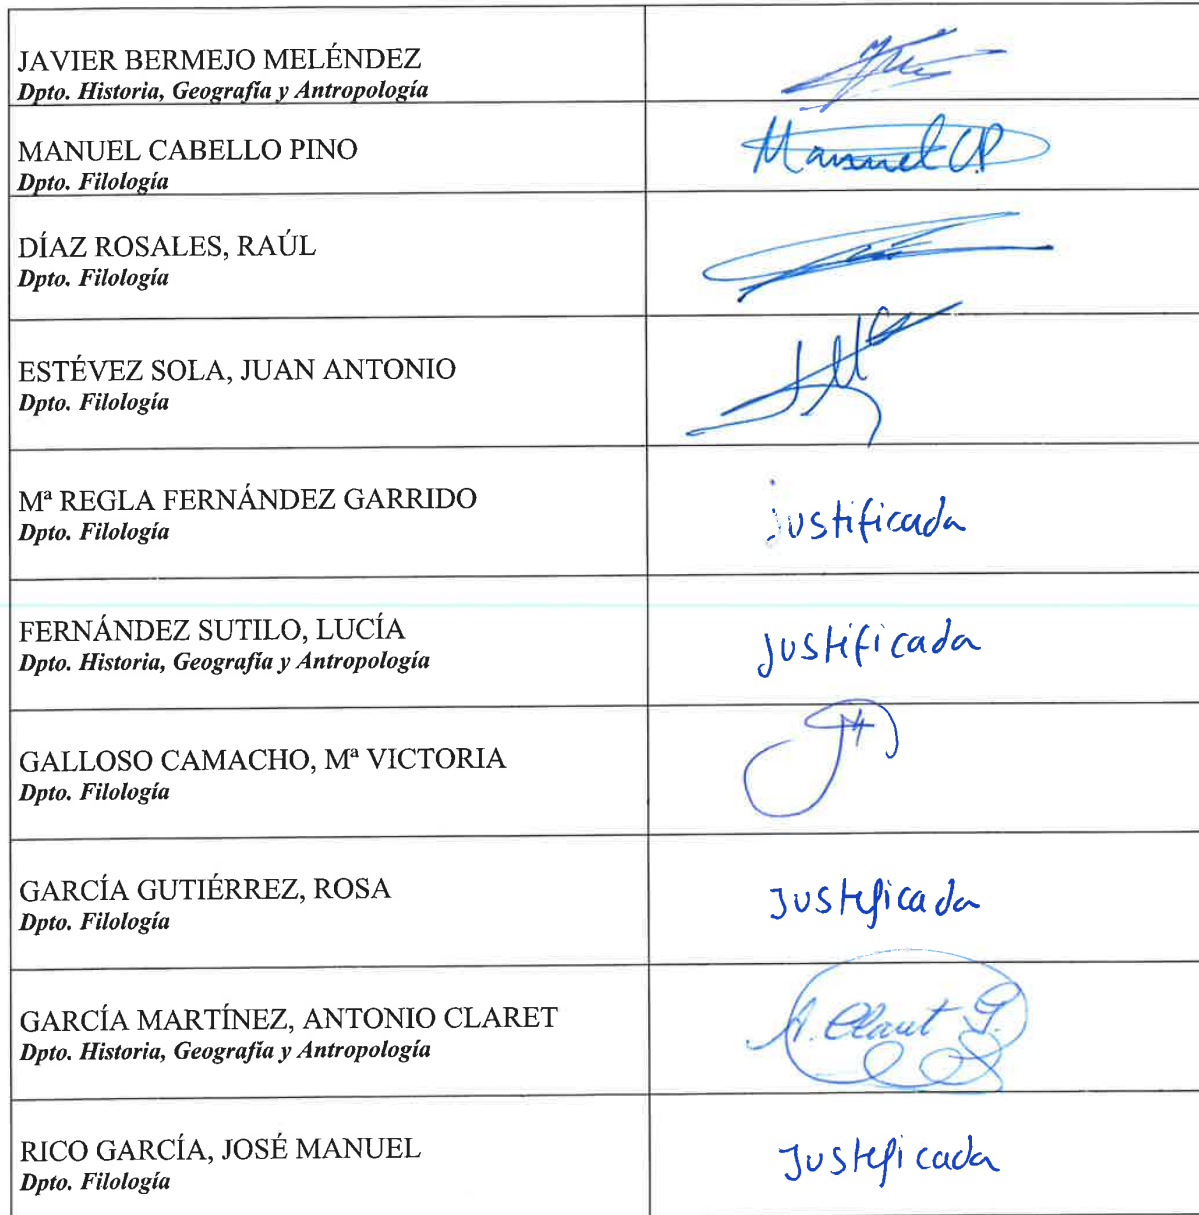 JAVIER BERMEJO MELÉNDEZ
Dpto. Historia, Geografía y Antropología
MANUEL CABELLO PINO
Dpto. Filología
Manuel CP
DÍAZ ROSALES, RAÚL
Dpto. Filología
ESTÉVEZ SOLA, JUAN ANTONIO
Dpto. Filología
Mª REGLA FERNÁNDEZ GARRIDO
Dpto. Filología
justificada
FERNÁNDEZ SUTILO, LUCÍA
Dpto. Historia, Geografía y Antropología
justificada
GALLOSO CAMACHO, Mª VICTORIA
Dpto. Filología
GARCÍA GUTIÉRREZ, ROSA
Dpto. Filología
Justificada
GARCÍA MARTÍNEZ, ANTONIO CLARET
Dpto. Historia, Geografía y Antropología
A. Claret G.
RICO GARCÍA, JOSÉ MANUEL
Dpto. Filología
Justificada